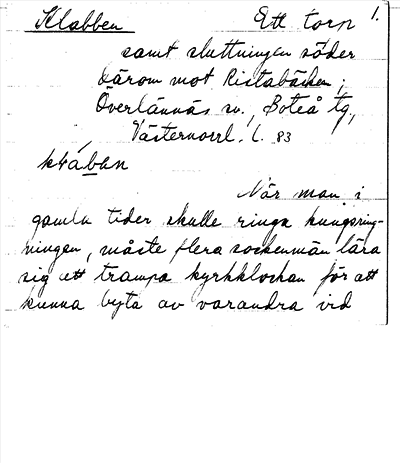 Klabben Ett torp 1.
samt sluttningen söder
därom mot Ristabäcken;
Överlännäs sn., Boteå tg,
Västernorrl. l. 83
klában
När man i
gamla tider skulle ringa kungsring-
ningen, måste flera sockenmän lära
sig att trampa kyrkklockan för att
kunna byta av varandra vid